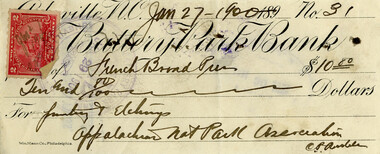 Asheville, N.C. Jan 27 - 1900 189 No. 31
Battery Park Bank
of French Broad Press $10.00
Ten and 00/100 Dollars
For printing & Etchings
Appalachian Nat Park Association